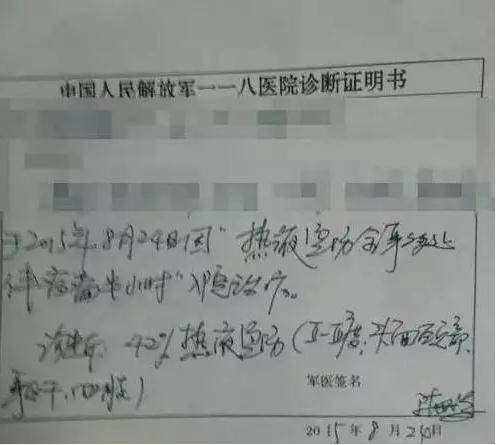 中国人民解放军一一八医院诊断证明书
于2015年8月24日因"热液烫伤全身多处
伴疼痛半小时"入院治疗。
诊断: 42%热液烫伤(II-III度,头面颈
躯干,四肢)
军医签名
2015年8月2 日